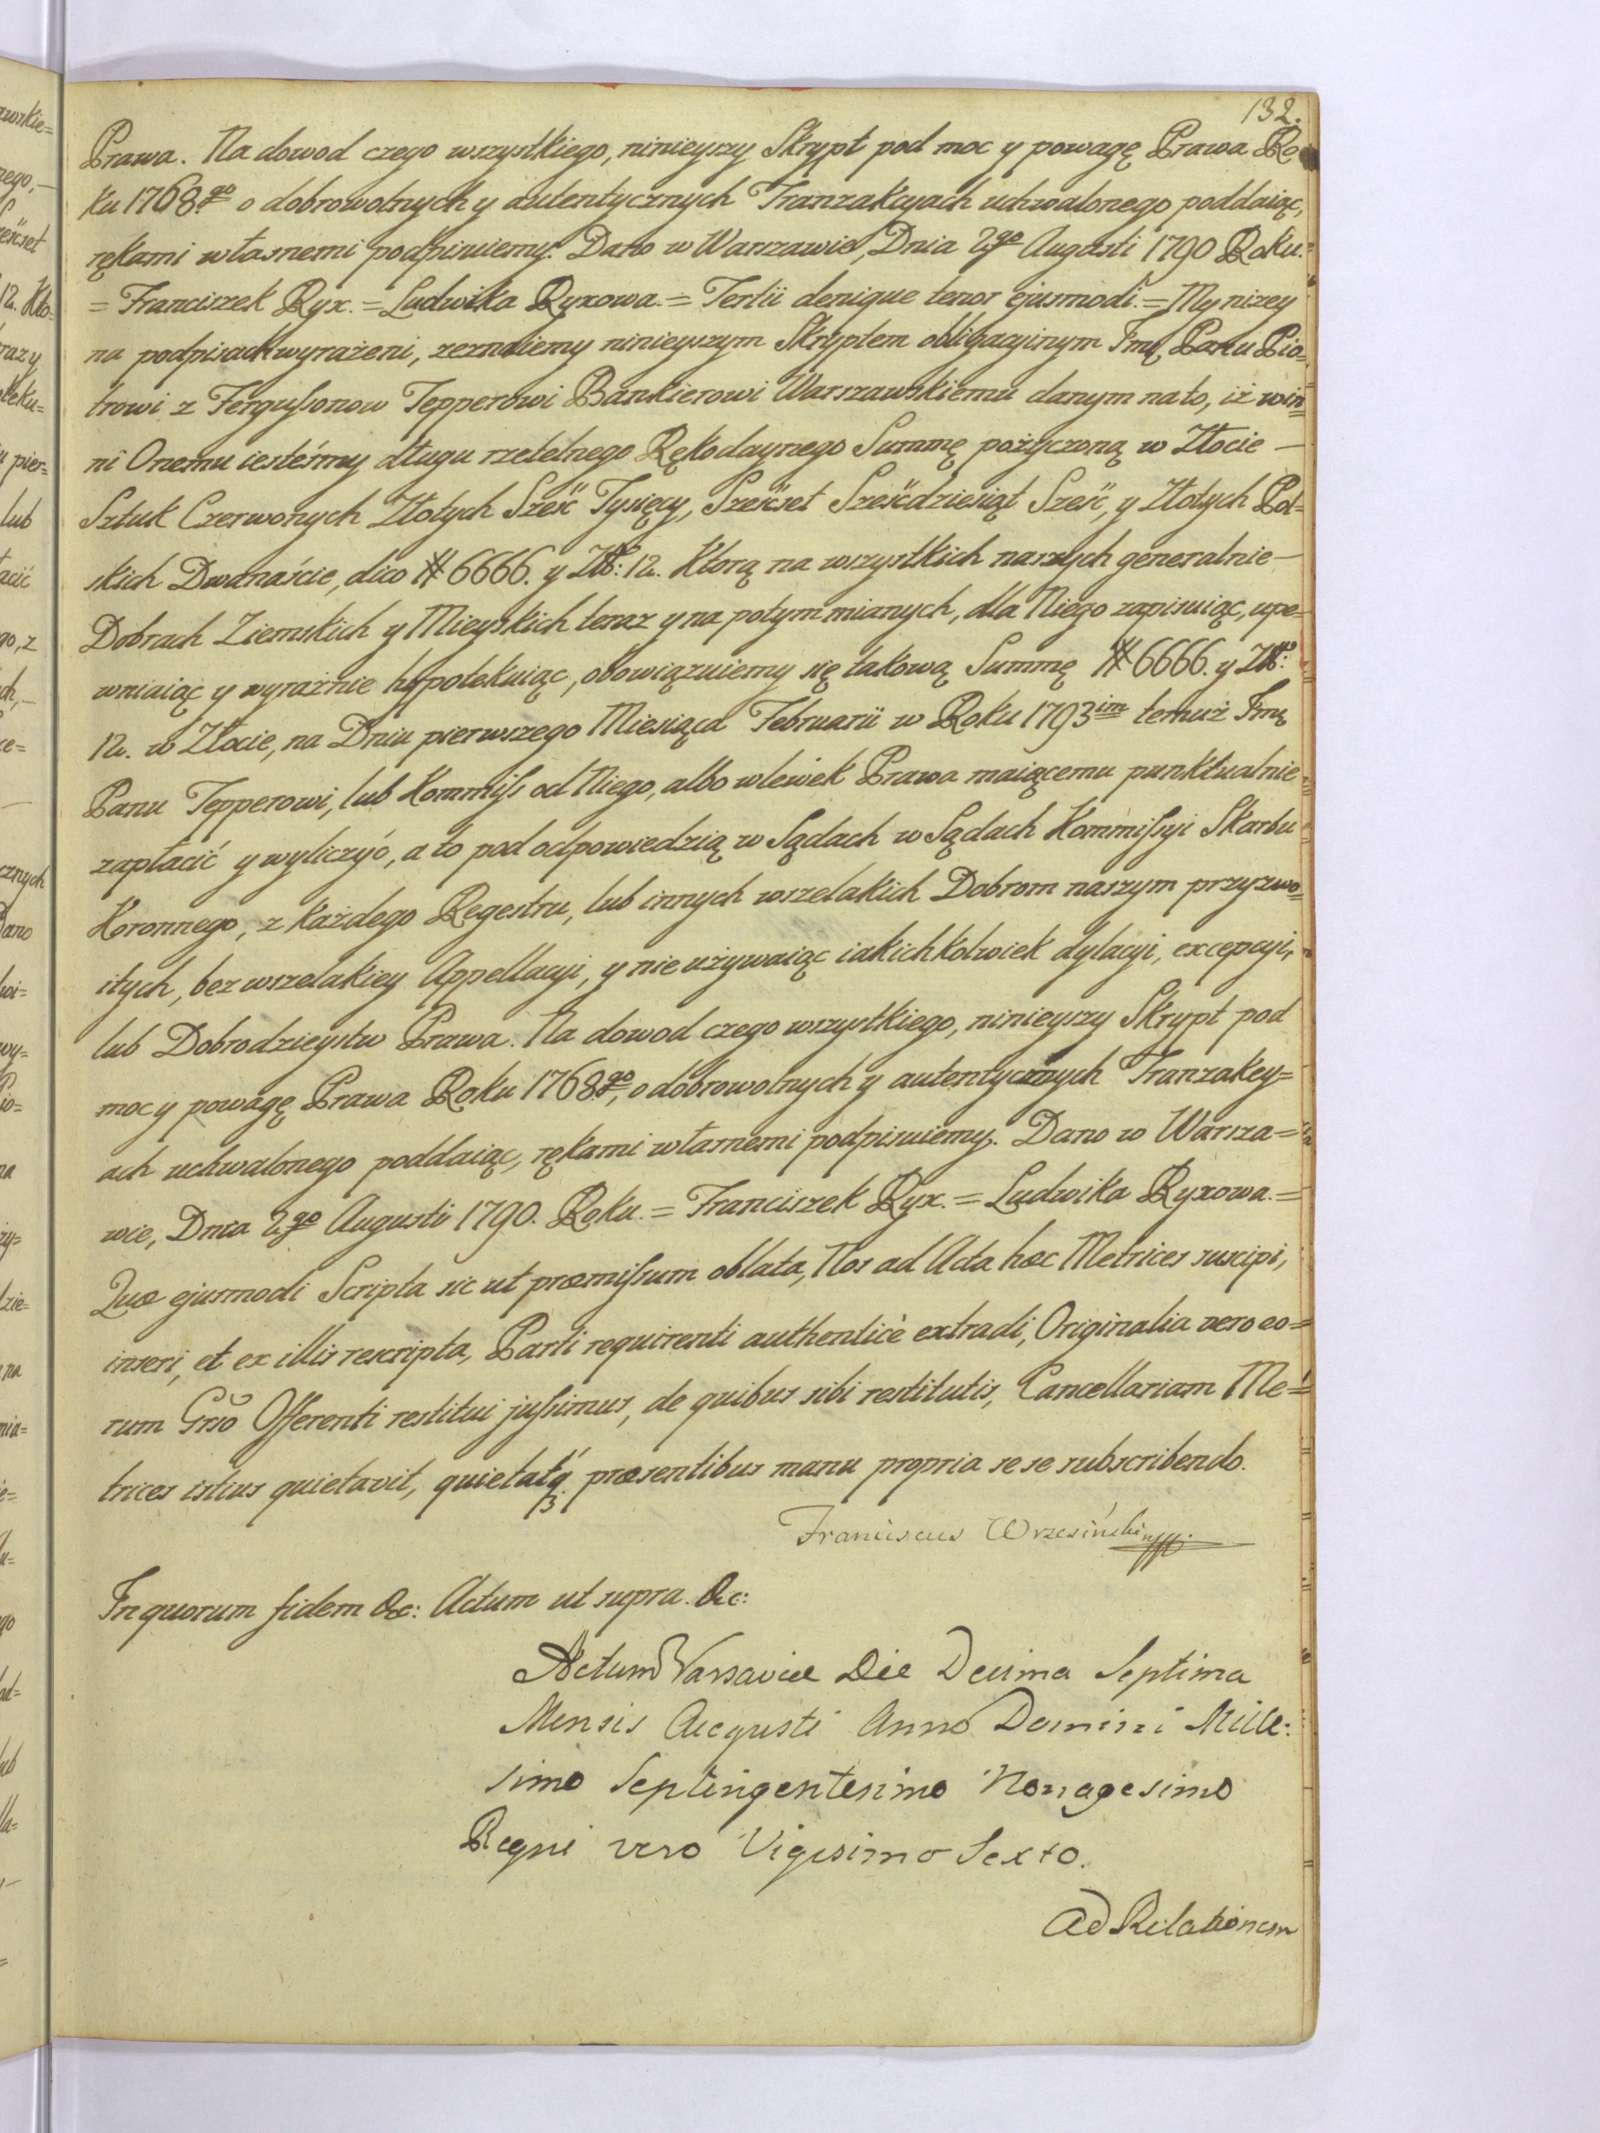 132.
Prawa. Na dowod czego wszystkiego, ninieyszy Skrypt pod moc y powagę Prawa Ro
ku 1768.go o dobrowolnych y autentycznych Tranzakcyach uchwalonego poddaiąc,
rękami własnemi podpisuiemy. Dano w Warszawie, Dnia 2go Augusti 1790 Roku.=
= Franciszek Ryx. = Ludwika Ryxowa. = Tertii denique tenor ejusmodi. = My niżey
na podpisach wyrażeni, zeznaiemy ninieyszym Skryptem obligacyinym Jmę Panu Pio=
trowi z Fergussonow Tepperowi Bankierowi Warszawskiemu danym na to, iż win=
ni Onemu iesteśmy długu rzetelnego Rękodaynego Summę pożyczoną w Złocie —
Sztuk Czerwonych Złotych Sześć Tysięcy, Sześćset Sześćdziesiąt Sześć, y Złotych Pol=
skich Dwanaście, dico # 6666. y Zł: 12. Którą na wszystkich naszych generalnie —
Dobrach Ziemskich y Mieyskich teraz y na potym mianych, dla Niego zapisuiąc, upe=
wniaiąc y wyraźnie hypotekuiąc, obowiązuiemy się takową Summę # 6666. y Zł:
12. w Złocie, na Dniu pierwszego Miesiąca Februarii w Roku 1793im temuż Jmę
Panu Tepperowi, lub Kommiss od Niego, albo wlewek Prawa maiącemu punktualnie
zapłacić y wyliczyć, a to pod odpowiedzią w Sądach w Sądach Kommissyi Skarbu
Koronnego, z każdego Regestru, lub innych wszelakich Dobrom naszym przyzwo=
itych, bez wszelakiey Appellacyi, y nie używaiąc iakichkolwiek dylacyi, excepcyi,
lub Dobrodzieystw Prawa. Na dowod czego wszystkiego, ninieyszy Skrypt pod
moc y powagę Prawa Roku 1768.go, o dobrowolnych y autentycznych Tranzakcy=
ach uchwalonego poddaiąc, rękami własnemi podpisuiemy. Dano w Warsza=
wie, Dnia 2go Augusti 1790. Roku. = Franciszek Ryx. = Ludwika Ryxowa. =
Quæ ejusmodi Scripta sic ut præmissum oblata, Nos ad Acta hæc Metrices suscipi,
inseri, et ex illis rescripta, Parti requirenti authenticè extradi, Originalia vero eo=
rum Grso Offerenti restitui jussimus, de quibus sibi restitutis, Cancellariam Me=
trices istius quietavit, quietatq. præsentibus manu propria se se subscribendo.
Franciscus Wrzesiński
In quorum fidem &c: Actum ut supra. &c:
Actum Varsaviæ Die Decima Septima
Mensis Augusti Anno Domini Mille:
simo Septingentesimo Nonagesimo
Regni vero Vigesimo Sexto.
Ad Relationem